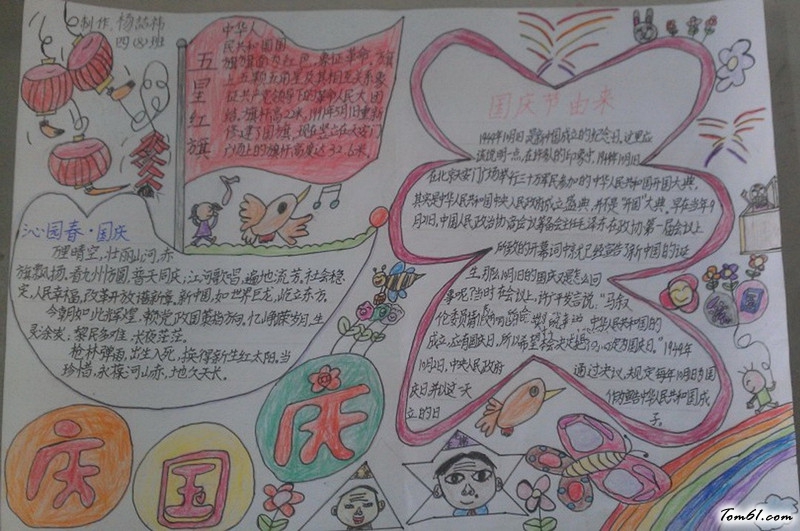 制作:杨
四(8)班
五星红旗
中华人
民共和国国
旗旗面为红色,象征革命,旗
上五颗五角星及其相互关系象
征共产党领导下的革命人民大团
结。旗杆高22米,1991年5月1日重新
修建了国旗,现在竖立在天安门
广场上的旗杆高度达32.6米。
沁园春·国庆
万里晴空,壮丽山河,赤
旗飘扬。看九州方圆,普天同庆;江河歌唱,遍地流芳。社会稳
定,人民幸福,改革开放谱新章。新中国,如世界巨龙,屹立东方。
今朝如此辉煌,赖党政国策指方向。忆峥嵘岁月,生
灵涂炭;黎民多难,长夜茫茫。
枪林弹雨,出生入死,换得新生红太阳。当
珍惜,永葆河山赤,地久天长。
庆
国
庆
国庆节由来
1949年10月1日,是新中国成立的纪念日。这里应
该说明一点,在许多人的印象中,1949年10月1日
在北京天安门广场举行三十万军民参加的中华人民共和国开国大典。
其实是中华人民共和国中央人民政府成立盛典,并非是“开国”大典。早在当年9
月21日,中国人民政治协商会议筹备会主任毛泽东在政协第一届会议上
所致的开幕词中就已经宣告了新中国的诞
生。那么10月1日的国庆又是怎么回
事呢?当时在会议上,许广平发言说:“马叙
伦委员请假
中华人民共和国的
成立,应有国庆日,所以希望本会决定把10月1日定为国庆日。”1949年
10月2日,中央人民政府
通过决议,规定每年10月1日为国
庆日,并以这一天
作为宣告中华人民共和国成
立的日
子。
国
Tom61.com